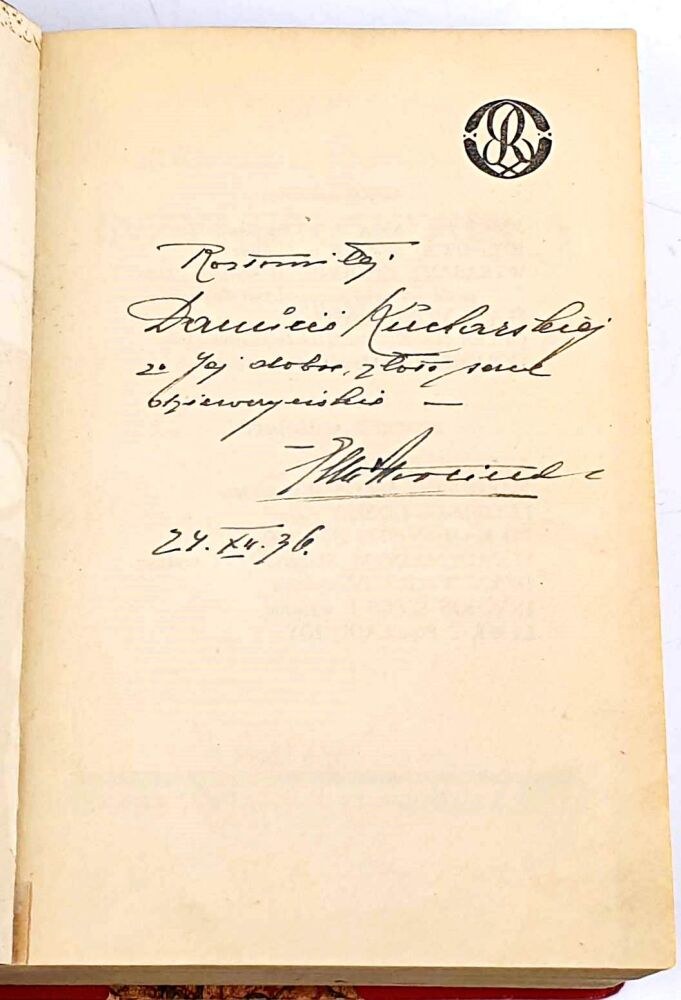 Roztomiłej
Danusi Kucharskiej
za Jej dobre, złote serce
dziewczęce —
24. XII. 36.